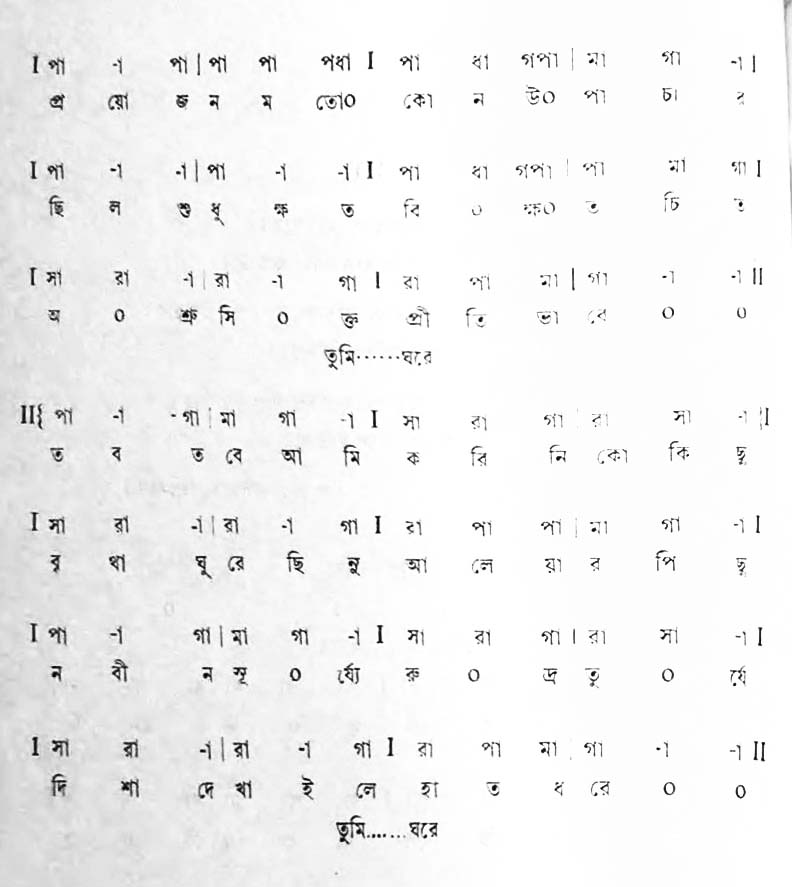 I পা -া পা | পা পা পধা I পা ধা গপা | মা গা -া I
প্র য়ো জ ন ম তো০ কো ন উ০ পা চা র
I পা -া -া | পা -া -া I পা ধা গপা | পা মা গা I
ছি ল শু ধু ক্ষ ত বি ০ ক্ষ০ ত চি ত
I সা রা -া | রা -া গা I রা পা মা | গা -া -া II
অ ০ শ্রু সি ০ ক্ত প্রী তি ভা বে ০ ০
তুমি······ঘরে
II{ পা -া -গা | মা গা -া I সা রা গা | রা সা -া }I
ত ব ত বে আ মি ক রি নি কো কি ছু
I সা রা -া | রা -া গা I রা পা পা | মা গা -া I
বৃ থা ঘু রে ছি নু আ লে য়া র পি ছু
I পা -া গা | মা গা -া I সা রা গা | রা সা -া I
ন বী ন সূ ০ র্যে রু ০ দ্র তূ ০ র্যে
I সা রা -া | রা -া গা I রা পা মা | গা -া -া II
দি শা দে খা ই লে হা ত ধ রে ০ ০
তুমি......ঘরে